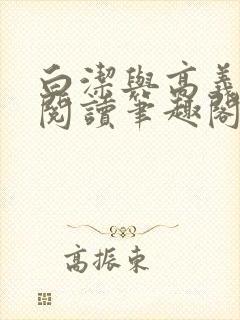 白潔與高義
閱讀筆趣閣
高振東